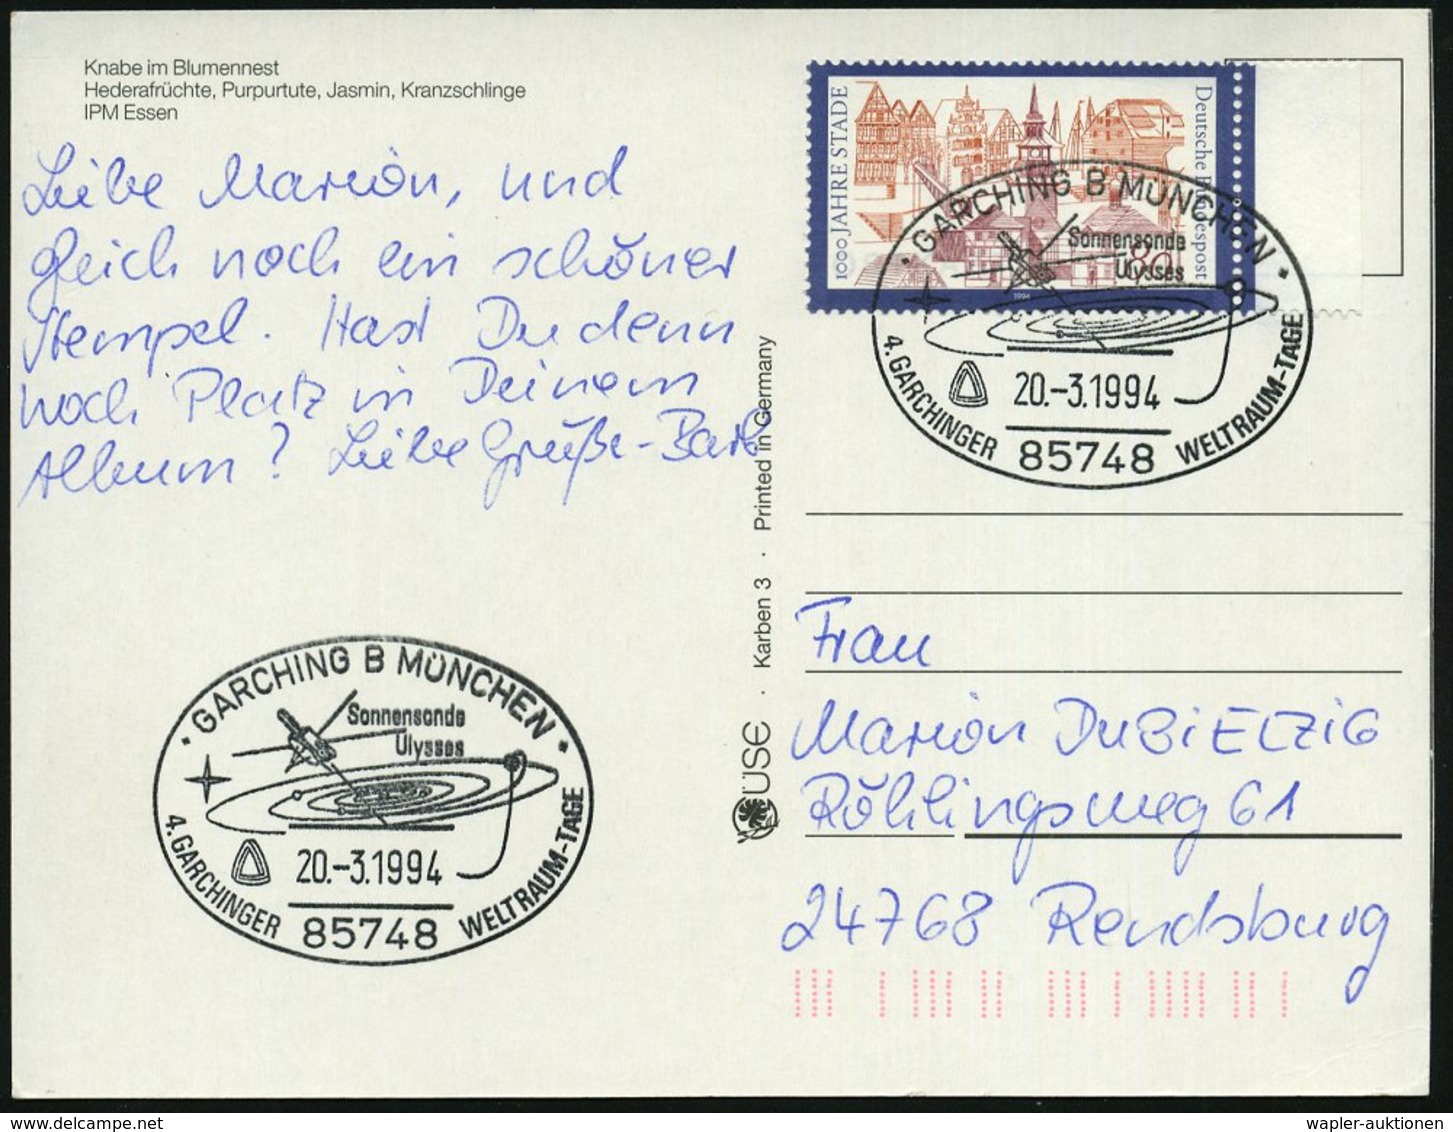 Knabe im Blumennest
Hederafrüchte, Purpurtute, Jasmin, Kranzschlinge
IPM Essen
Liebe Marion, und
gleich noch ein schöner
Stempel. Hast Du denn
noch Platz in Deinem
Album? Liebe Grüße - Barb
1000 JAHRE STADE
Deutsche Bundespost
80
1994
· GARCHING B MÜNCHEN ·
Sonnensonde
Ulysses
20.-3.1994
85748
4. GARCHINGER WELTRAUM-TAGE
Karben 3 · Printed in Germany
ÜSE
Frau
Marion DUBIELZIG
Röhlingsweg 61
24768 Rendsburg
· GARCHING B MÜNCHEN ·
Sonnensonde
Ulysses
20.-3.1994
85748
4. GARCHINGER WELTRAUM-TAGE
wapler-auktionen